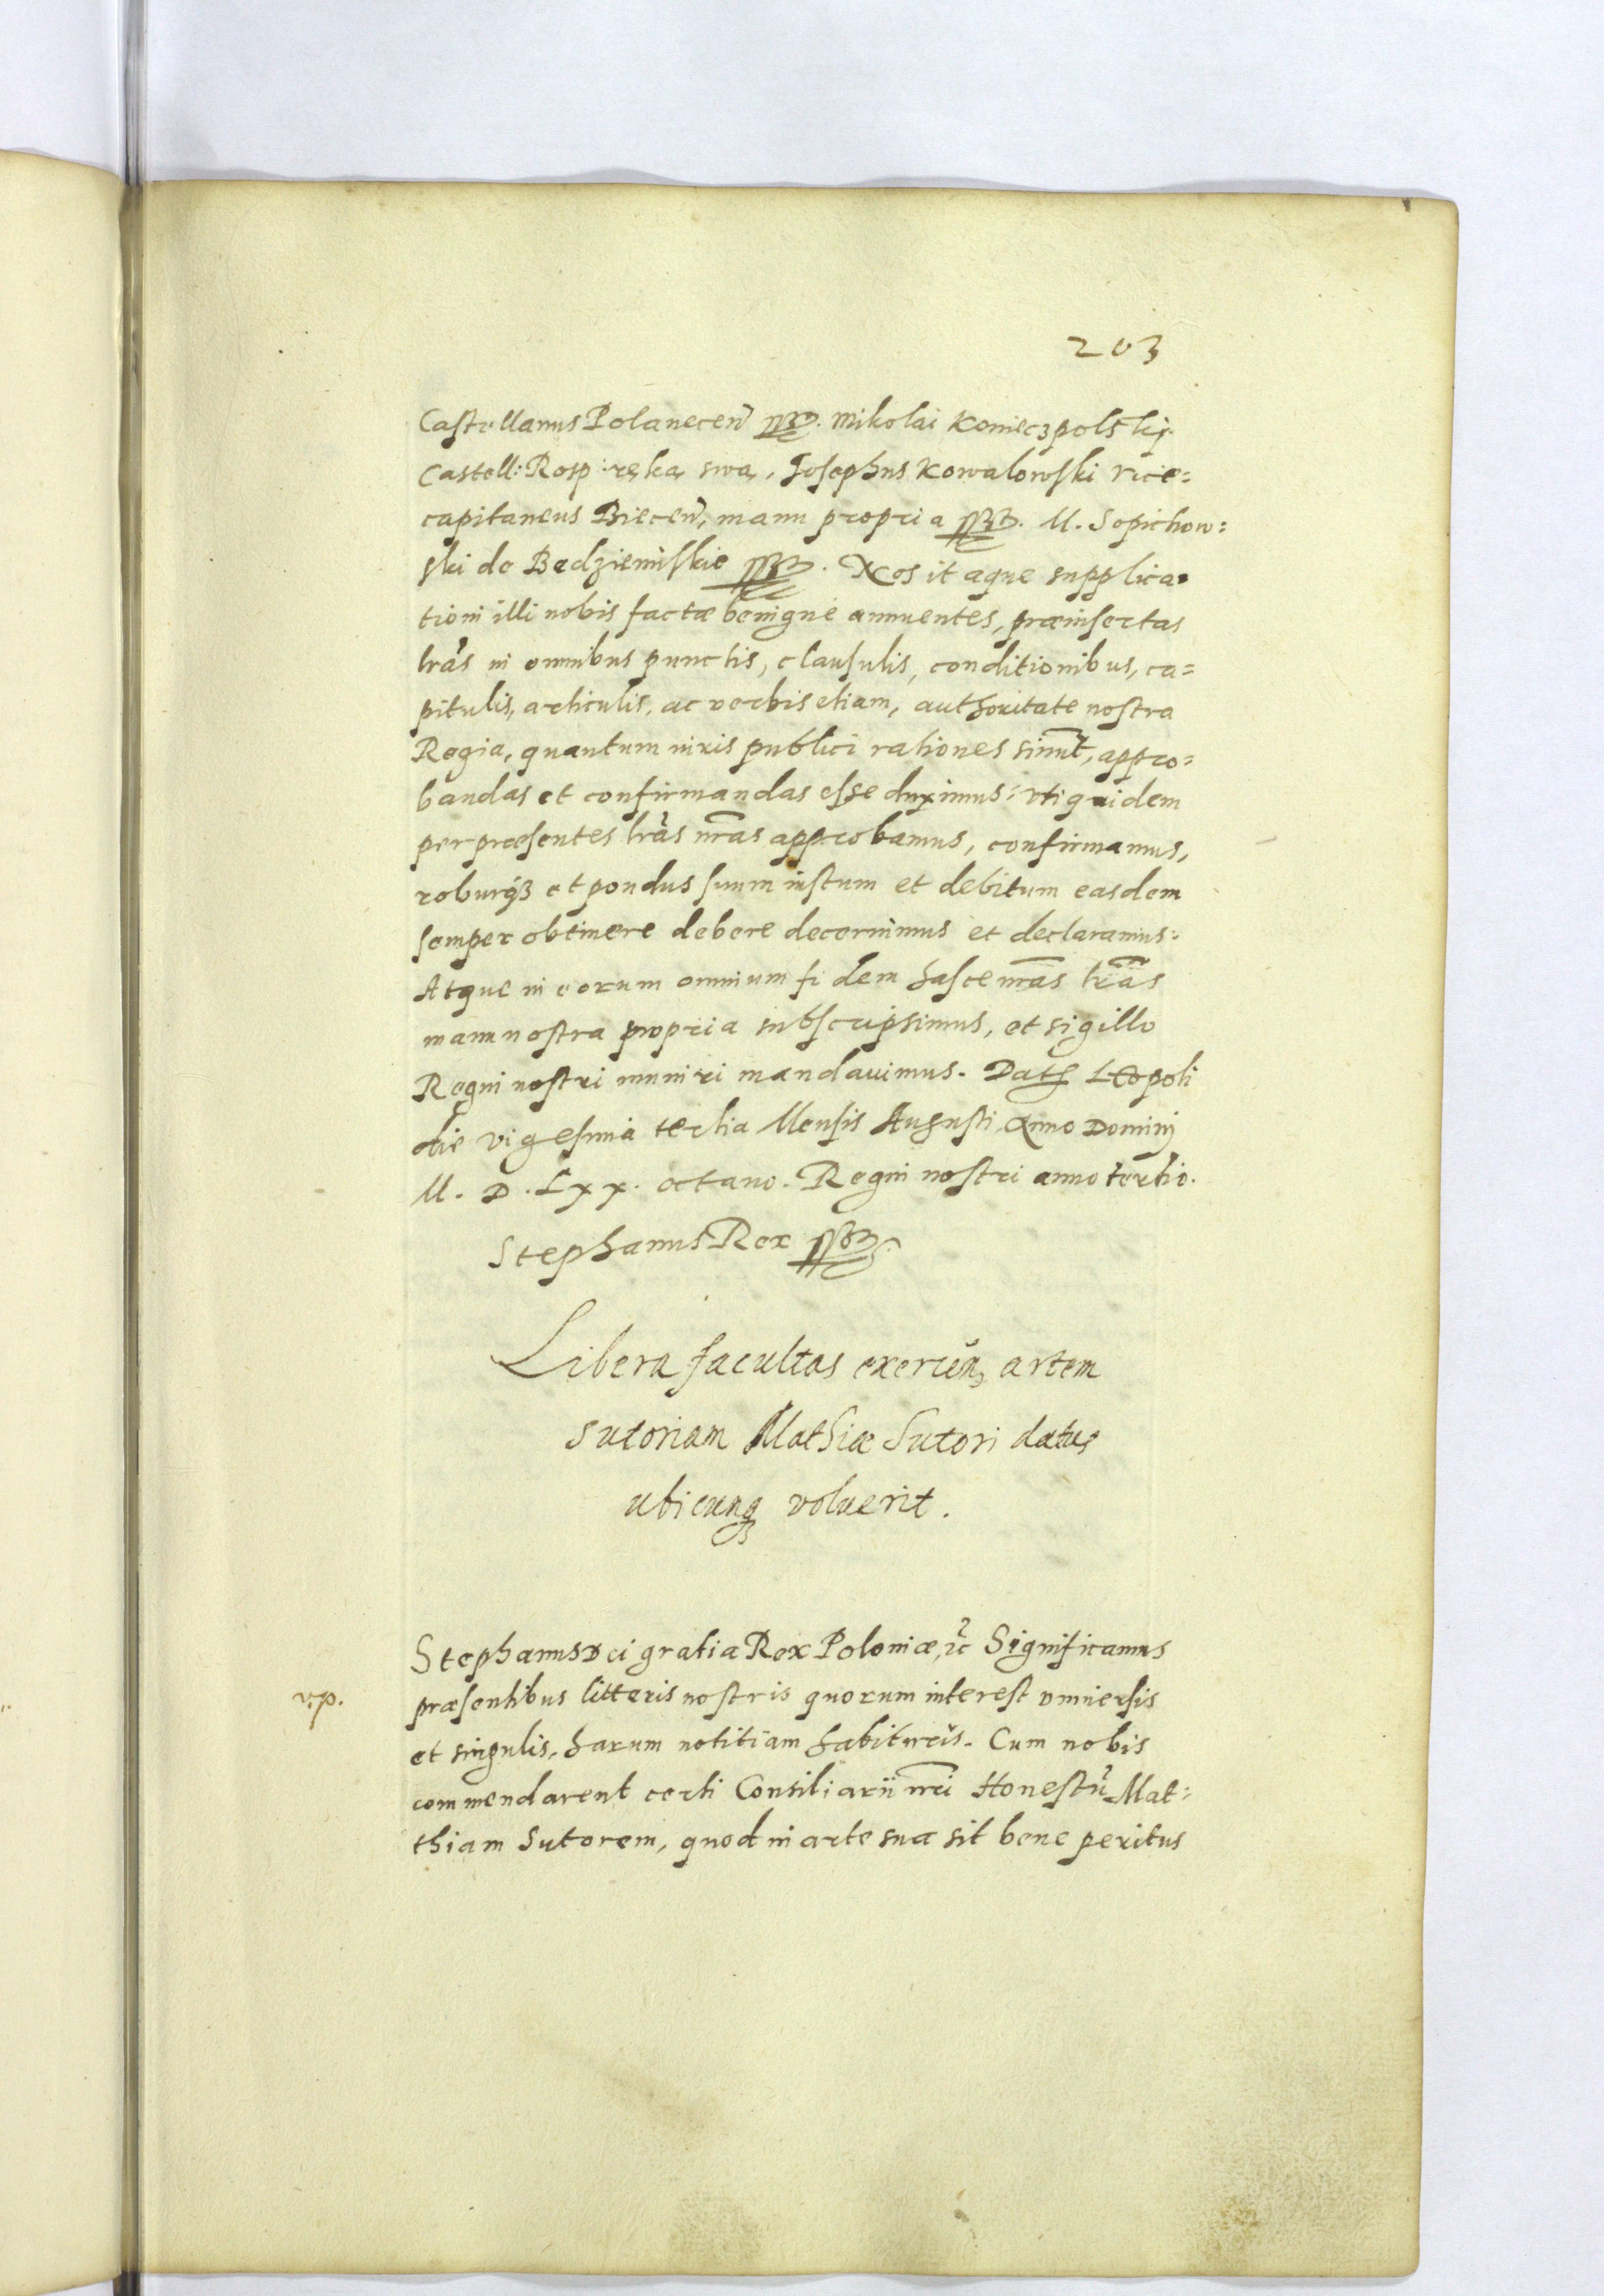 203
Castellanus Polanecen̄ Mikolai Koniecpolski
Castell: Rosp: ręką swą. Josephus Kowalowski vice=
capitaneus Biecen̄, manu propria M. Sepichow=
ski de Bedziemiskie. Nos itaque supplica=
tioni illi nobis factæ benigne annuentes, præinsertas
lrās in omnibus punctis, clausulis, conditionibus, ca=
pitulis, articulis, ac verbis etiam, authoritate nostra
Regia, quantum iuris publici rationes sinūt, appro=
bandas et confirmandas esse duximus: Vti quidem
per præsentes lrās nrās approbamus, confirmamus,
roburq3 et pondus suum iustum et debitum easdem
semper obtinere debere decernimus et declaramus:
Atque in eorum omnium fidem hasce nrās lrās
manu nostra propria subscripsimus, et sigillo
Regni nostri muniri mandauimus. Dat Leopoli
die vigesima tertia Mensis Augusti Anno Dominj
M. D. Lxx. octauo. Regni nostri anno tertio.
Stephanus Rex
Libera facultas exercen, artem
sutoriam Mathiæ Sutori datus
ubicunq3 voluerit.
Stephanus Dei gratia Rex Poloniæ, ꝛc Significamus
v.p.
præsentibus litteris nostris quorum interest vniuersis
et singulis, harum notitiam habituris. Cum nobis
commendarent certi Consiliarii nrī Honestū Mat=
thiam Sutorem, quod in arte sua sit bene peritus